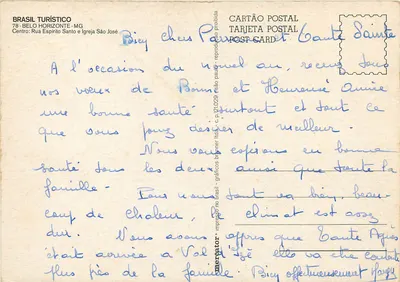 BRASIL TURÍSTICO
79 - BELO HORIZONTE - MG
Centro: Rua Espírito Santo e Igreja São José
CARTÃO POSTAL
TARJETA POSTAL
POST CARD
Bien chers Parrain et Tante
A l'occasion du nouvel an, recevez tous
nos voeux de Bonne et Heureuse Année
une bonne santé surtout et tout ce
que vous pouvez désirer de meilleur.
Nous vous espérons en bonne
santé tous les deux ainsi que toute la
famille. Pour nous tout va bien, beau-
coup de chaleur, le climat est assez
dur. Nous avons appris que Tante Agnès
était arrivée à elle va être
plus près de la famille. affectueusement
mercator